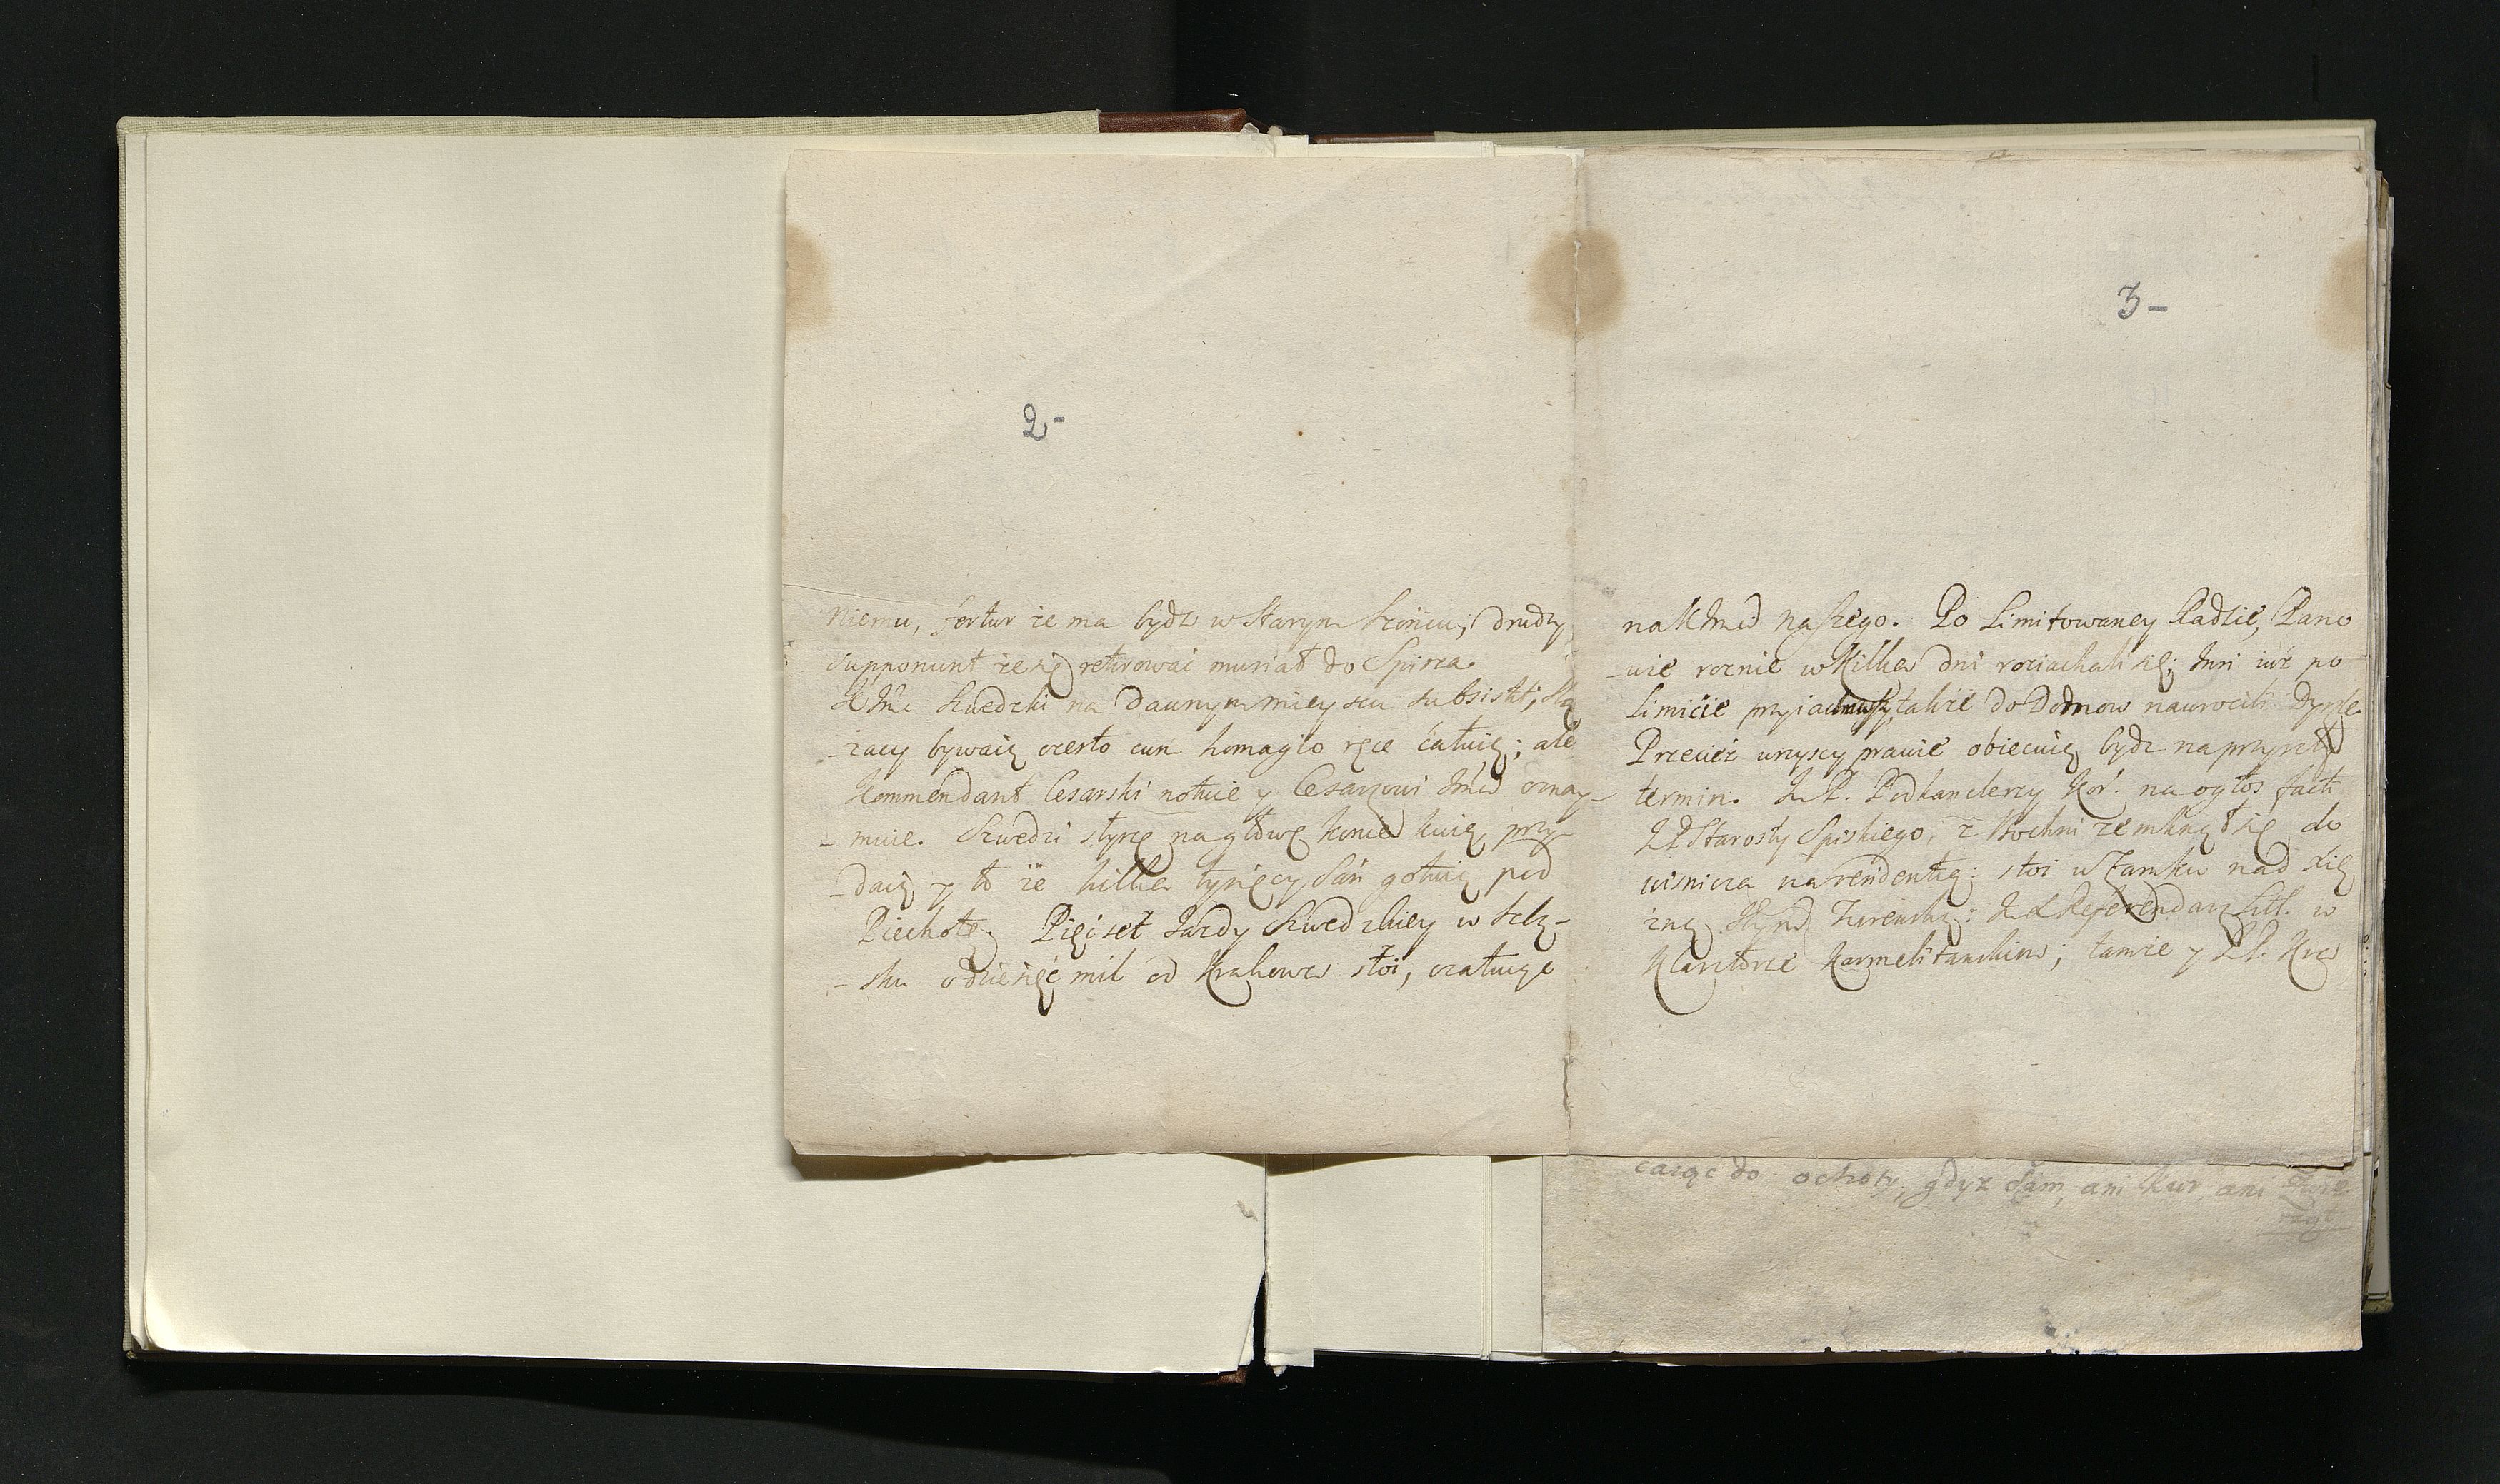 2-
Niemu, fertur że ma bydz w Starym Sączu, drudzy
supponunt że się retirować muriał do Spisza.
szwedzki na dawnym mieyscu subsistit,
-zacy bywaią często cum homagio ręce całuią; ale
Kommendant Cesarski notuie y Cesarzowi Jmci oznay-
-muie. Szwedzi słyszę na głowę konie kuią, przy-
-daią y to że kilka tysięcy Sań gotuią pod
Piechotę. Pięćset Jazdy Szwedzkiey w
-sku o dziesięć mil od Krakowa stoi, czatuiąc
3-
na KJmci naszego. Po Limitowaney Radzie, Pano
-wie roznie w kilka dni roziachali się; Inni iuż po
Limicie przyiachawszy, także do Domow nawrocili
Przecież wszyscy prawie obiecuią bydz na przyszły
termin. J.P. Podkanclerzy Kor. na ogłos facti
JP Starosty Spiskiego, z Bochni zemknął się do
wisnicza na rendentią; stoi w Zamku nad
Referendarz Litt. w
Klasztorze Karmelitanskim; tamże y J.P.
caiąc do ochoty, gdyż sam, ani kur, ani